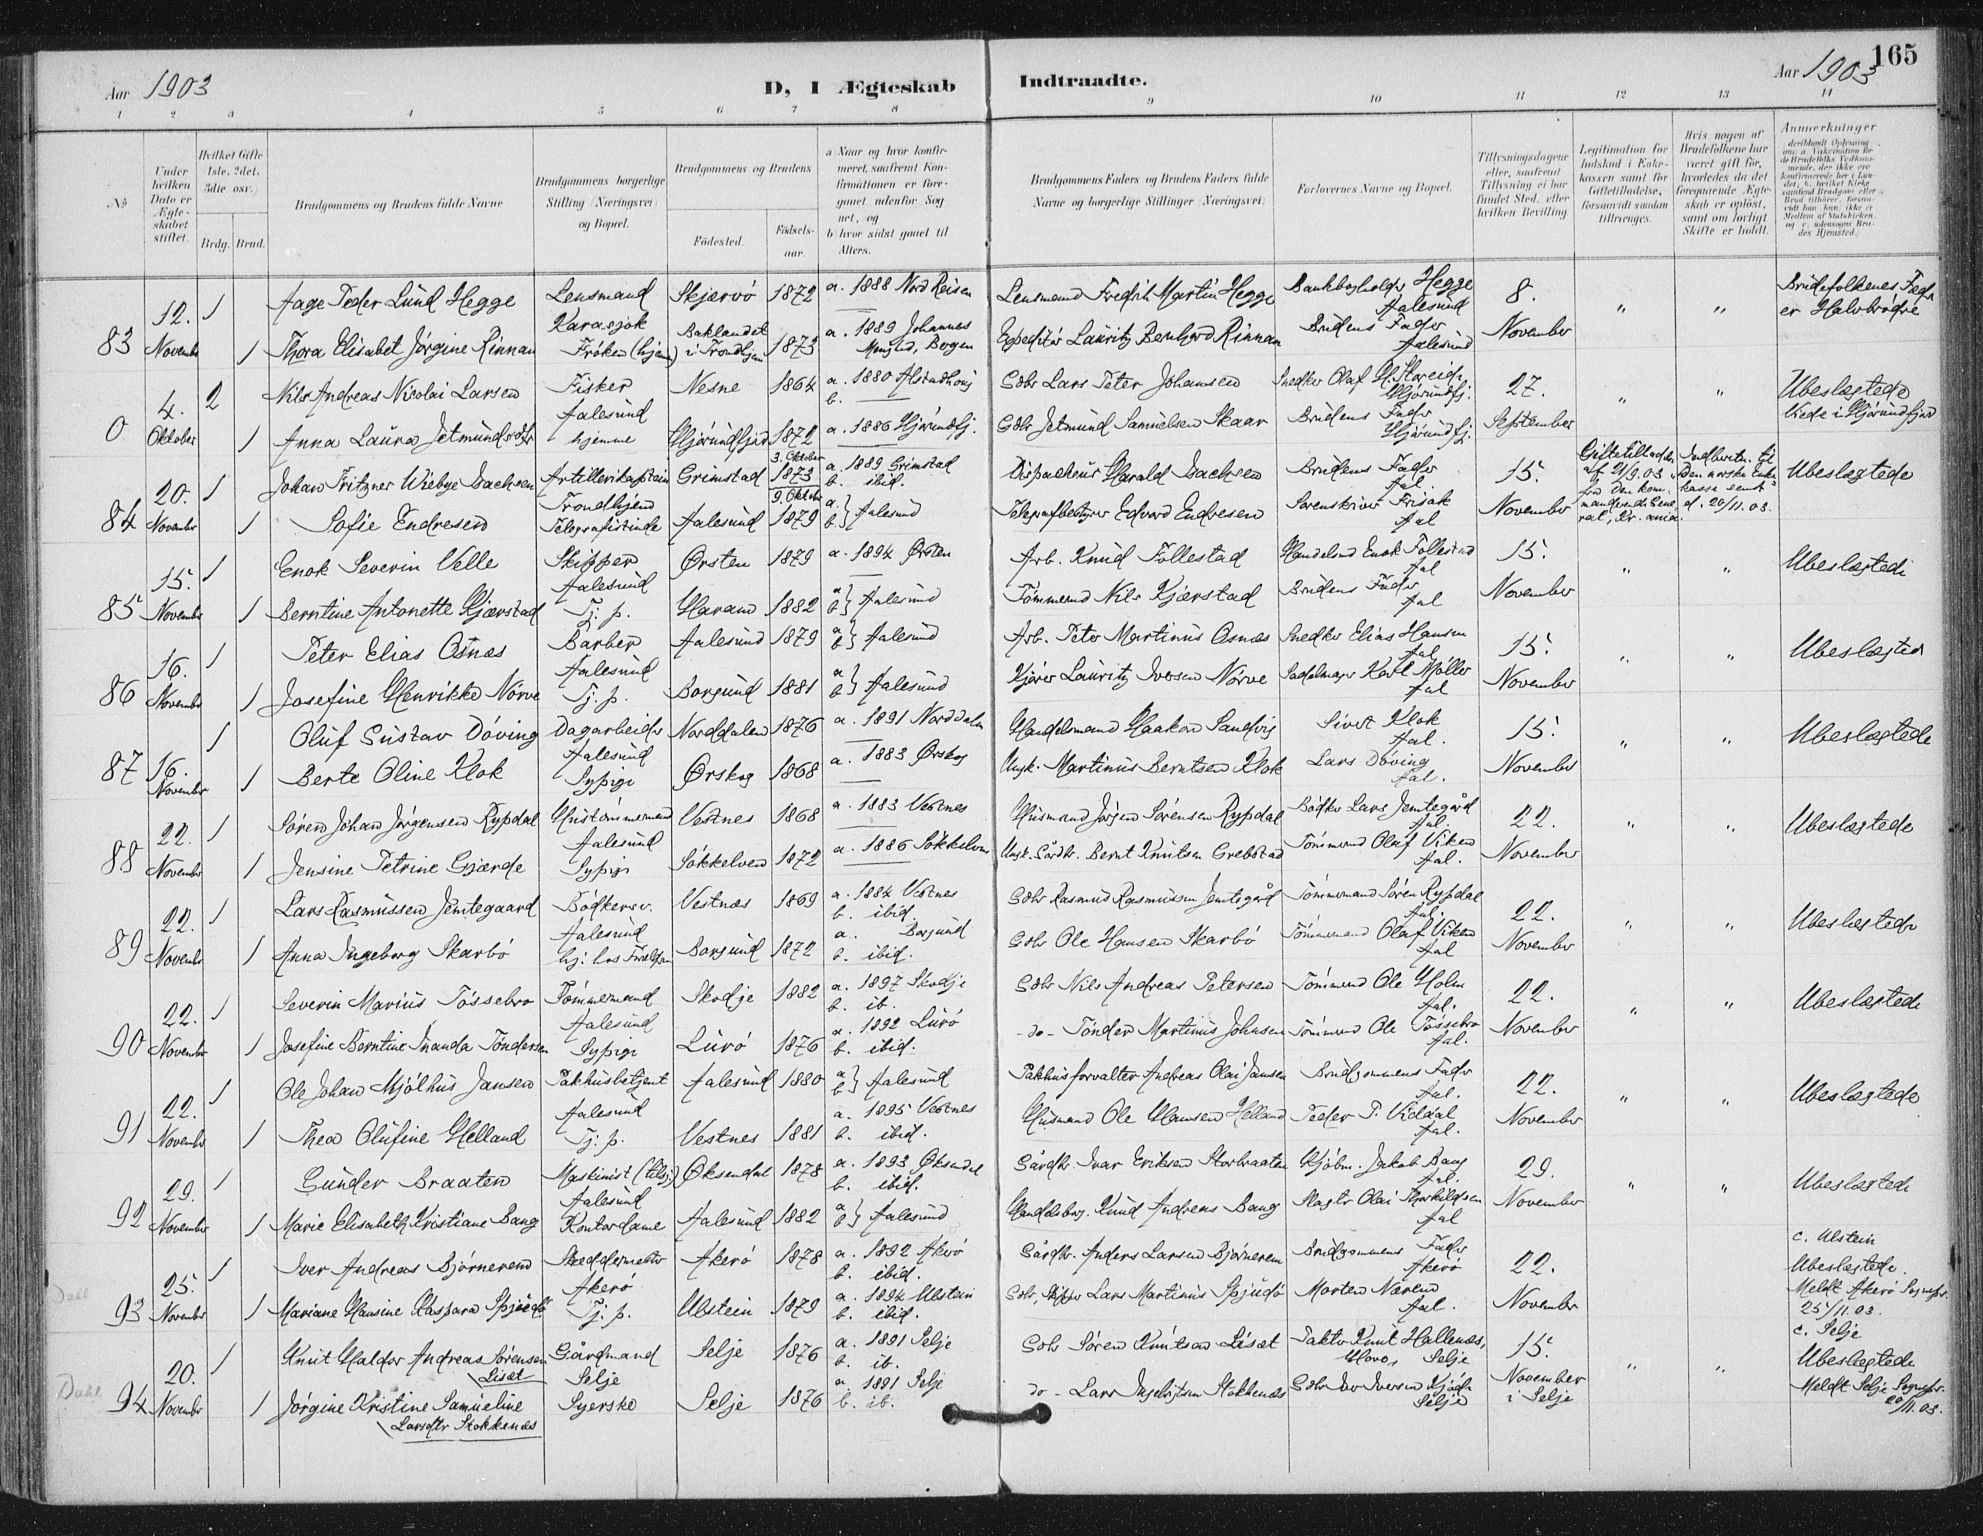 165
Aar 1903
D, I Ægteskab Indtraadte.
Aar 1903
1 2 3 4 5 6 7 8 9 10 11 12 13 14
No
Under hvilken Dato er Ægteskabet stiftet.
Hvilket Gifte 1ste. 2det. 3die osv.)
Brdg. Brud.
Brudgommens og Brudens fulde Navne
Brudgommens borgerlige Stilling (Næringsvei) og Bopæl.
Brudgommens og Brudens
Fødested.
Fødselsaar.
a Naar og hvor konfirmeret, saafremt Konfirmationen er foregaaet udenfor Sognet, og
b hvor sidst gaaet til Alters.
Brudgommens Faders og Brudens Faders fulde Navne og borgerlige Stillinger (Næringsvei)
Forlovernes Navne og Bopæl.
Tillysningsdagene eller, saafremt Tillysning ei har fundet Sted, efter hvilken Bevilling.
Legitimation for Indskud i Enkekassen samt for Giftetilladelse, forsaavidt saadan tiltrænges.
Hvis nogen af Brudefolkene har været gift før, hvorledes da det foregaaende Ægteskab er opløst, samt om lovligt Skifte er holdt.
Anmerkninger
83 12. November 1 Aage Peder Lund Hegge Lensmand Karasjok Skjærvø 1872 a. 1888 Nord Reisen Lensmand Fredrik Martin Hegge Bankbogholder Hegge Aalesund 8. November " " Brudefolkenes Fædre er Halvbrødre
1 Thora Elisabet Jørgine Rinnan Frøken (hjem) Baklandet i Trondhjem 1873 a. 1889 Johannes Menighed, Bergen Expeditør Lauritz Bernhard Rinnan Brudens Fader Aalesund
0 4. Oktober 2 Nils Andreas Nicolai Larsen Fisker Aalesund Nesne 1864 a. 1880 Alstadhoug b. Gdbr Lars Peter Johansen Snedker Olaf H. Storeide Hjørundfj. 27. September " " Ubeslægtede Viede i Hjørundfjord
1 Anna Laura Jetmundsdtr hjemme Hjørundfjord 1872 a. 1886 Hjørundfj. Gdbr Jetmund Samuelsen Skaar Brudens Fader Hjørundfj.
84 20. November 1 Johan Fritzner Wiebye Isachsen Artillerikaptein Trondhjem Grimstad 3. Oktober 1873 a. 1889 Grimstad b. ibid. Dispacheur Harald Isachsen Brudens Fader Aal. 15. November Giftetilladelse af 21/9.03 fra den kommanderende General, Kr.ania. Indberetn. til Den norske Enkekasse sendt d. 20/11.03. Ubeslægtede
1 Sofie Endresen Telegrafistinde Aalesund 9. Oktober 1879 a. b. } Aalesund Telegrafbestyrer Edvard Endresen Sorenskriver Frisak Aal
85 15. November 1 Enok Severin Velle Skipper Aalesund Ørsten 1879 a. 1894 Ørsten Arb. Knud Follestad Handelsmd Enok Follestad Aal 15. November " " Ubeslægtede
1 Berntine Antonette Kjærstad Tj. p. Haram 1882 a b } Aalesund Tømmermd Nils Kjærstad Brudens Fader Aal
86 16. November 1 Peter Elias Osnæs Barber Aalesund Aalesund 1879 a b } Aalesund Arb. Peter Martinus Osnæs Snedker Elias Hansen Aal 15. November " " Ubeslægted
1 Josefine Henrikke Nørve Tj. p. Borgund 1881 a b } Aalesund Kjører Lauritz Iversen Nørve Sadelmager Karl Møller Aal
87 16. November 1 Oluf Gustav Døving Dagarbeider Aalesund Norddalen 1876 a. 1891 Norddalen Handelsmand Haakon Sandvig Sivert Klok Aal. 15. November " " Ubeslægtede
1 Berte Oline Klok Sypige Ørskog 1868 a. 1883 Ørskog Ungk. Martinus Berntsen Klok Lars Døving Aal.
88 22. November 1 Søren Johan Jørgensen Rypdal Hustømmermand Aalesund Vestnes 1868 a. 1883 Vestnes Husmand Jørgen Sørensen Rypdal Bødker Lars Jemtegård Aal. 22. November " " Ubeslægtede
1 Jensine Petrine Gjærde Sypige Søkkelven 1872 a. 1886 Søkkelven Ungk. Gårdbr. Bernt Knutsen Grebstad Tømmermd Olaf Viken Aal.
89 22. November 1 Lars Rasmussen Jemtegaard Bødkersv. Aalesund Vestnæs 1869 a. 1884 Vestnes b. ibid. Gdbr Rasmus Rasmussen Jemtegård Tømmermand Søren Rypdal Aal. 22. November " " Ubeslægtede
1 Anna Ingeborg Skarbø hj. hos Forældren Borgund 1872 a. Borgund b. ibid. Gdbr Ole Hansen Skarbø Tømmermand Olaf Viken Aal
90 22. November 1 Severin Marius Tøssebro Tømmermand Aalesund Skodje 1882 a. 1897 Skodje b. ib. Gdbr Nils Andreas Petersen Tømmermd Ole Holm Aal. 22. November " " Ubeslægtede
1 Josefine Berntine Inanda Tøndersen Sypige Lurø 1876 a. 1892 Lurø b. ibid. - do - Tønder Martinus Johnsen Tømmermd Ole Tøssebro Aal.
91 22. November 1 Ole Johan Mjølhus Jansen Pakhusbetjent Aalesund Aalesund 1880 a b } Aalesund Pakhusforvalter Andreas Olai Jansen Brudgommens Fader Aal. 22. November " " Ubeslægtede
1 Thea Olufine Helland Tj. p. Vestnes 1881 a. 1895 Vestnes b. ibid. Husmand Ole Hansen Helland Peder P. Viddal Aal.
92 29. November 1 Gunder Braaten Maskinist (tilsj) Aalesund Øksendal 1878 a. 1893 Øksendal b. ibid. Gårdbr. Ivar Eriksen Storbraaten Kjøbm. Jakob Bang Aal. 29. November " " Ubeslægtede
1 Marie Elisabeth Kristiane Bang Kontordame Aalesund 1882 a b } Aalesund Handelsborg. Knud Andreas Bang Slagter Olai Thorkildsen Aal
Dahl 93 25. November 1 Iver Andreas Bjørnerem Skreddermester Akerø Akerø 1878 a. 1892 Akrø b. ibid. Gårdbr. Anders Larsen Bjørnerem Brudgommens Fader Akerø 22. November c. Ulstein Ubeslægtede. Meldt Akerø Sognepr. 25/11.03.
1 Mariane Hansine Kaspara Spjudø Tj. p. Ulstein 1879 a. 1894 Ulstein b. ibid. Gdbr, Skipper Lars Martinus Spjudø Morten Nærem Aal.
Dahl 94 20. November 1 Knut Haldor Andreas Sørensen Liset Gårdmand Selje Selje 1876 a. 1891 Selje b. ib. Gdbr Søren Knutsen Liset Faktor Knut Hallenæs, Hovo, Selje 15. November i Selje " " c. Selje Ubeslægtede Meldt Selje Sognepr. 20/11.03.
1 Jørgine Kristine Samueline Larsdtr Stokkenes Syerske Selje 1876 a 1891 Selje b. ib. - do - Lars Ingebrigtsen Stokkenæs Gdbr Iver Iversen Kjøde Selje